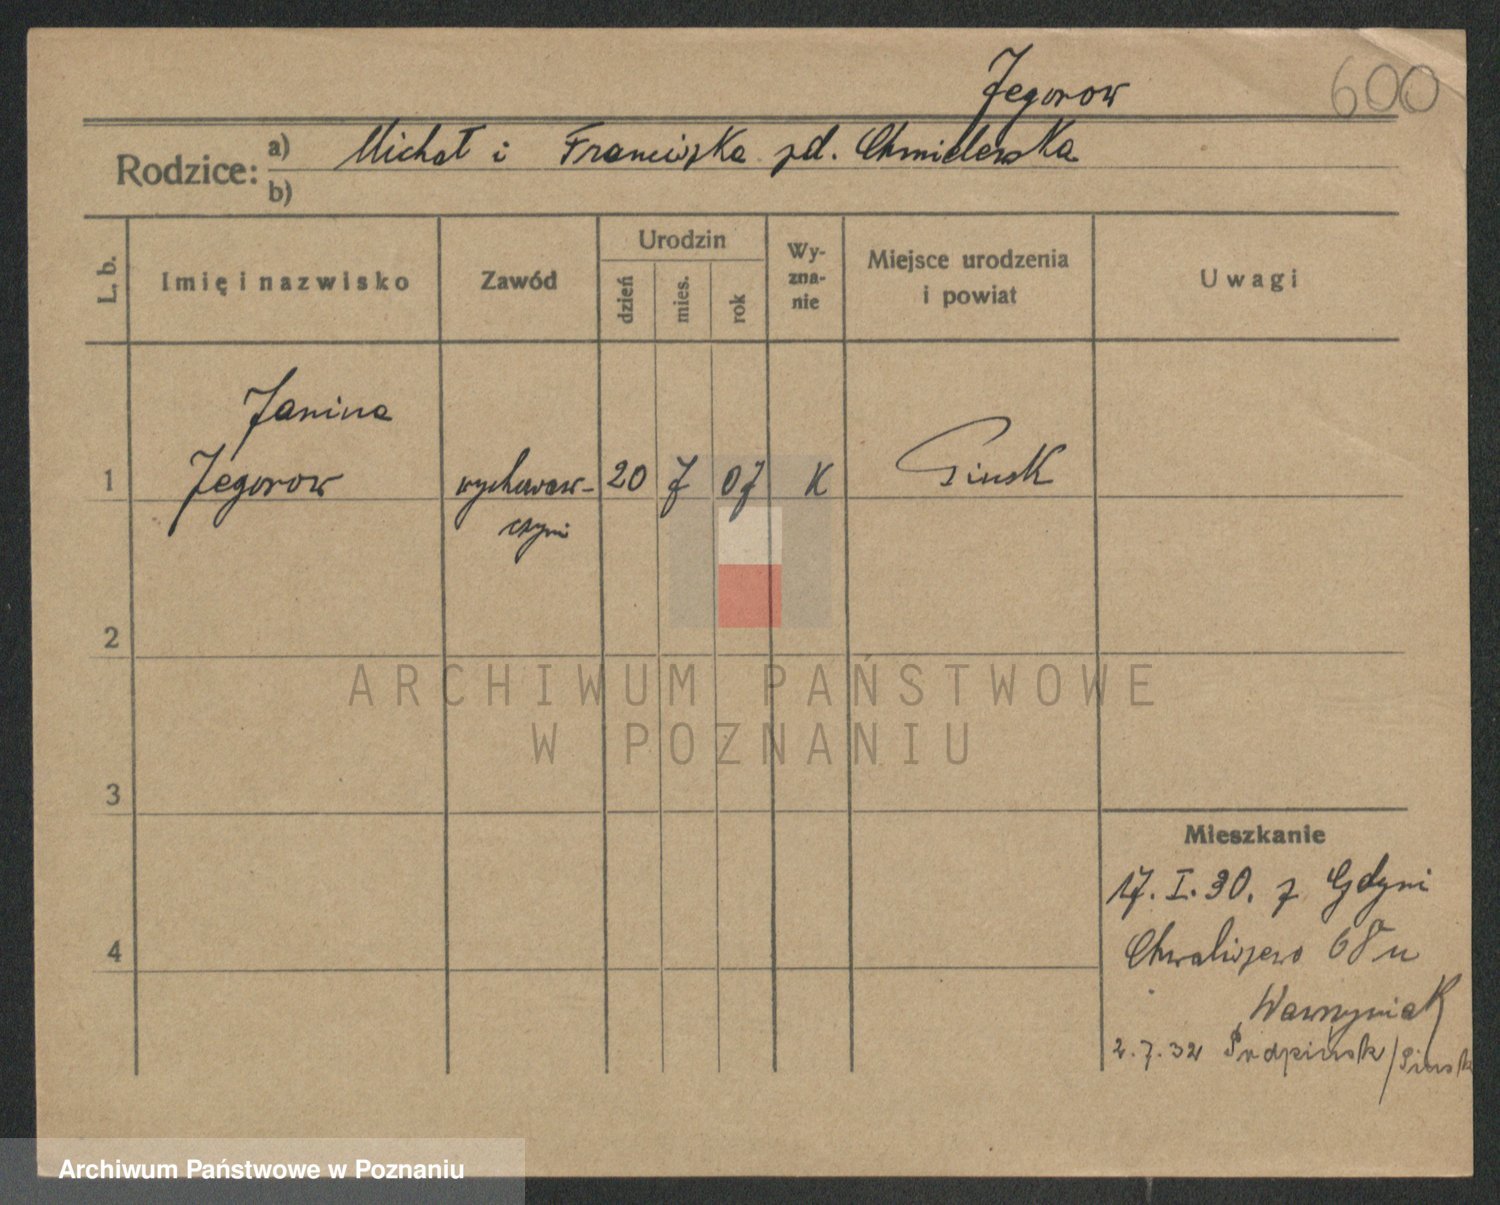 Jegorow
600
Rodzice:
a) Michał i Franciszka zd. Chmielewska
b)
L. b.
Imię i nazwisko
Zawód
Urodzin
dzień
mies.
rok
Wy-
zna-
nie
Miejsce urodzenia
i powiat
Uwagi
Janina
1 Jegorow wychowaw- 20 7 07 K Pinsk
czyni
2
3
4
ARCHIWUM PAŃSTWOWE
W POZNANIU
Mieszkanie
17.I.30. z Gdyni
Chwaliszewo 68 u
Wawrzyniak
2.7.32 /Pinsk
Archiwum Państwowe w Poznaniu